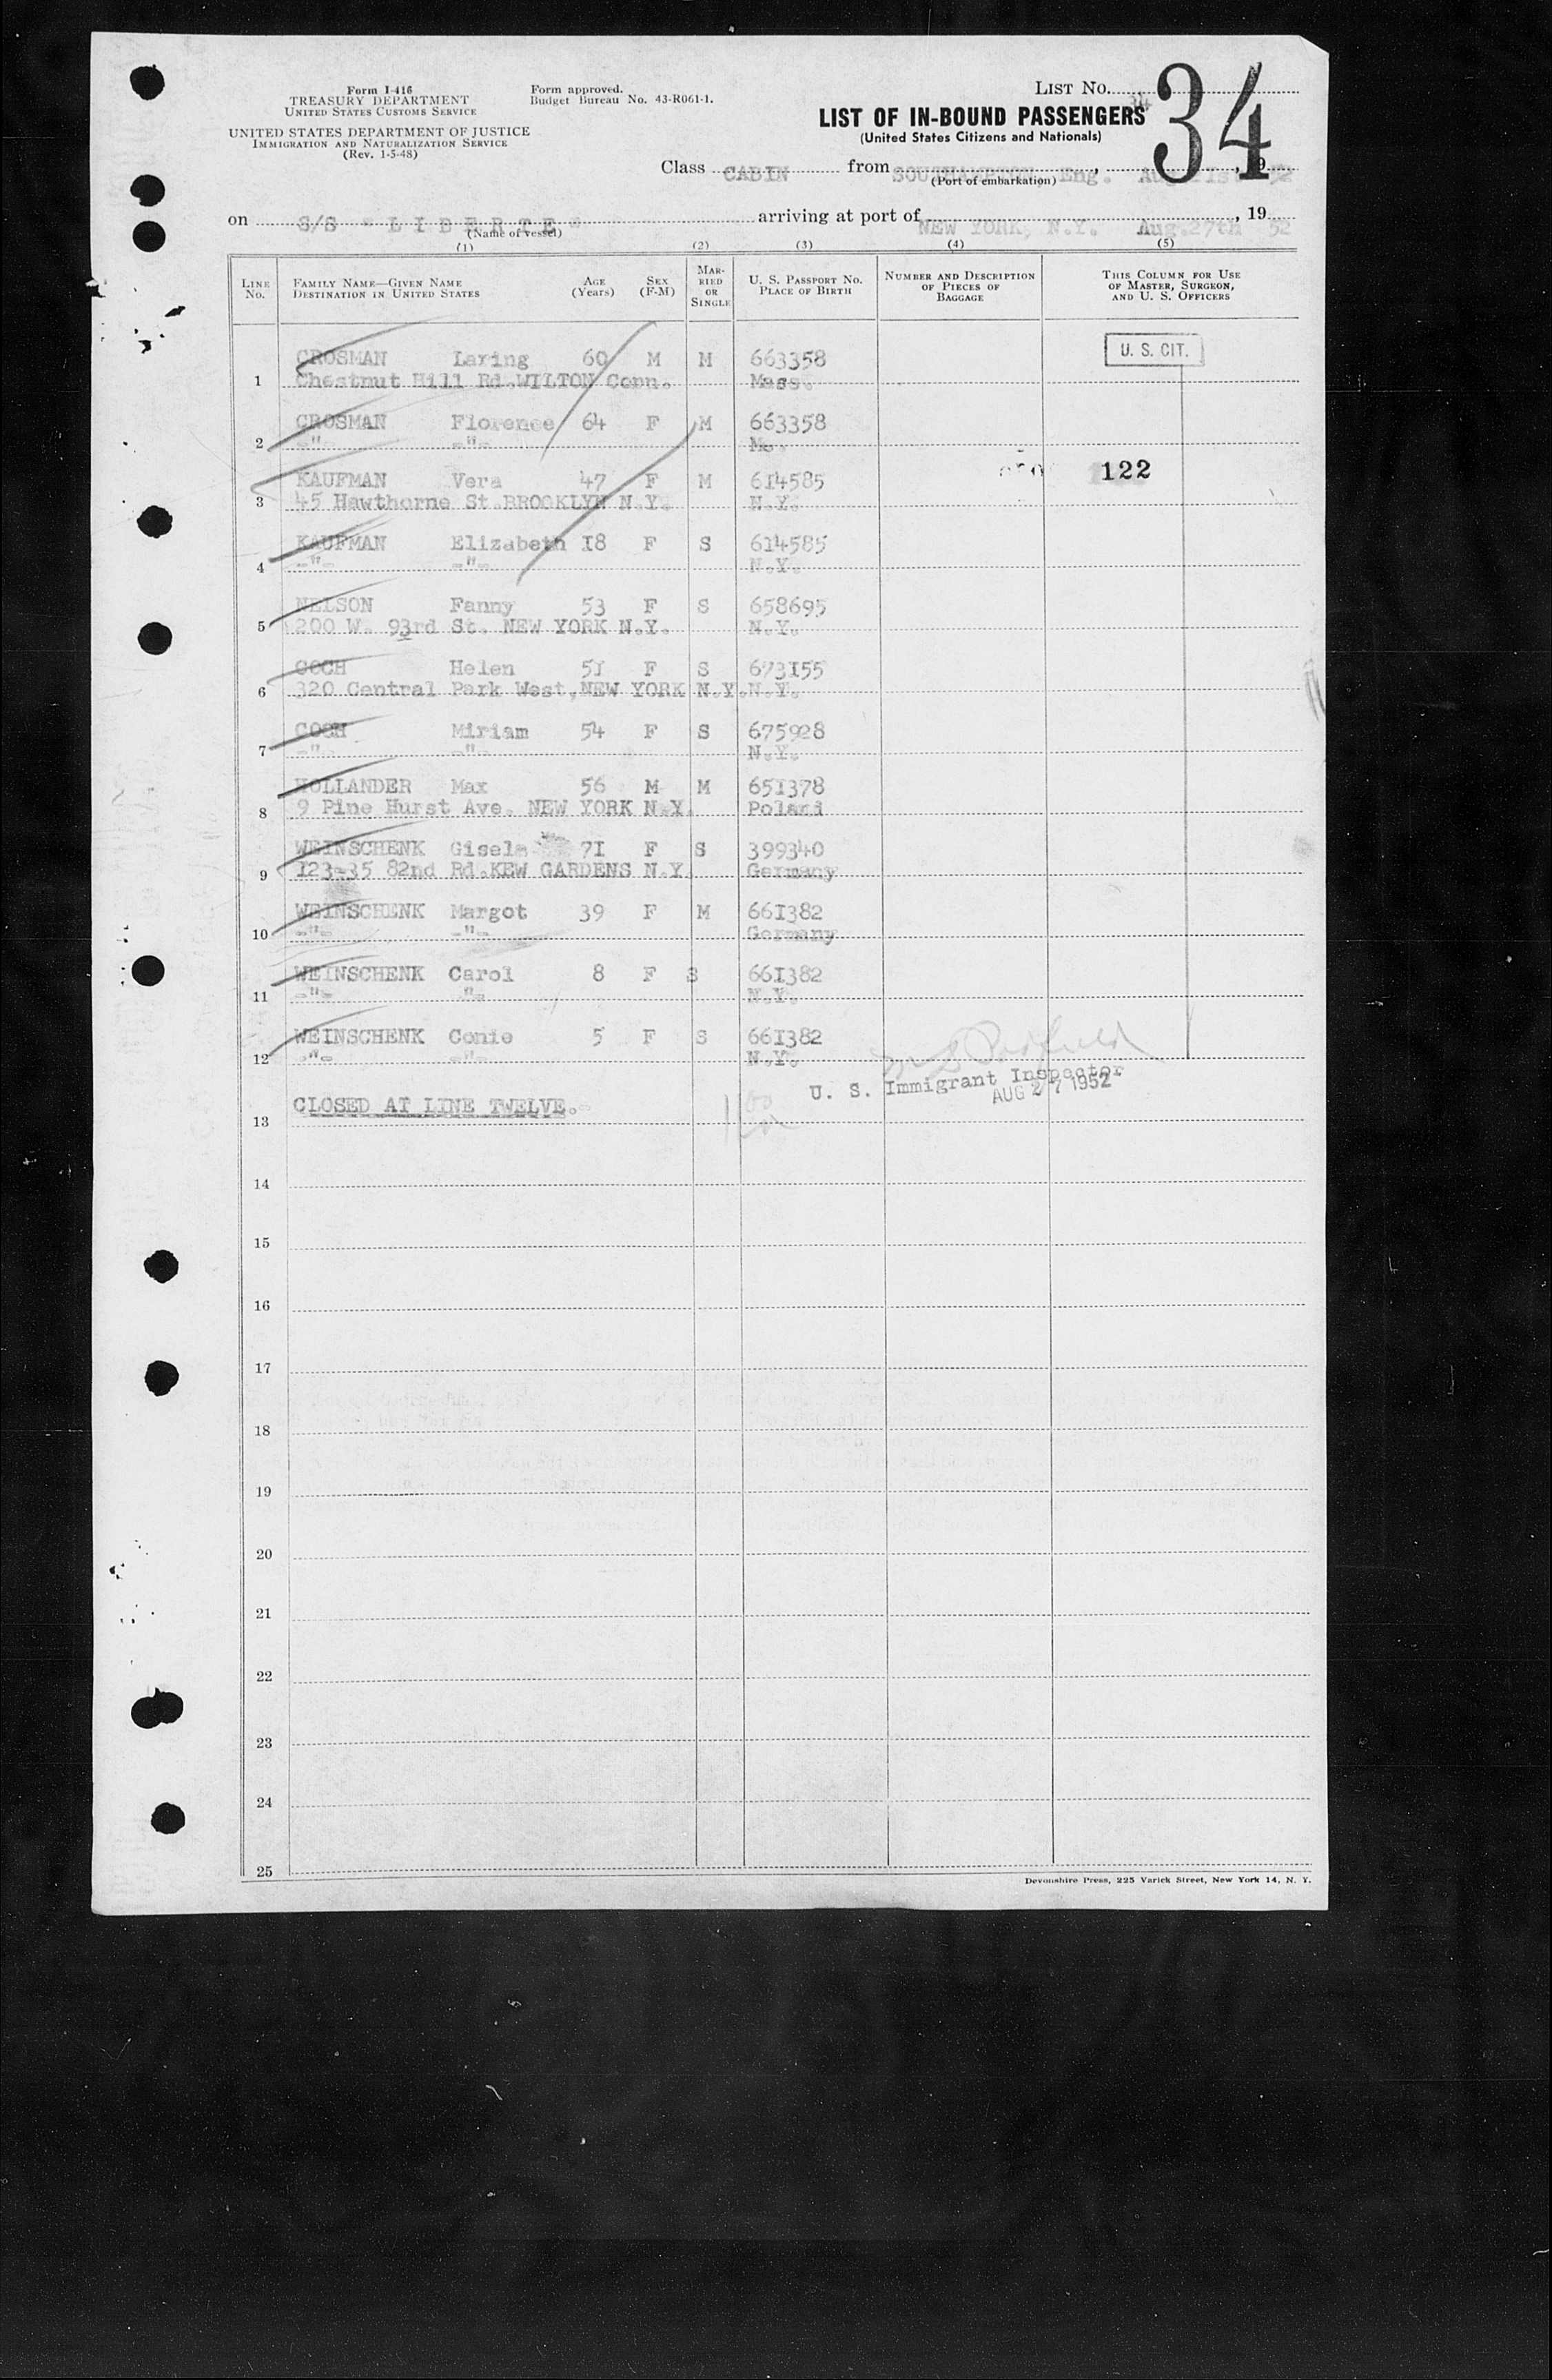 Form I-416
TREASURY DEPARTMENT
UNITED STATES CUSTOMS SERVICE
UNITED STATES DEPARTMENT OF JUSTICE
IMMIGRATION AND NATURALIZATION SERVICE
(Rev. 1-5-48)
Form approved.
Budget Bureau No. 43-R061-1.
LIST NO. 34
34
LIST OF IN-BOUND PASSENGERS
(United States Citizens and Nationals)
Class CABIN from SOUTHAMPTON, Eng. , 19 52
(Port of embarkation)
on S/S "LIBERTE" arriving at port of NEW YORK, N.Y. Aug.27th , 19 52
(Name of vessel)
(1) (2) (3) (4) (5)
LINE NO. FAMILY NAME—GIVEN NAME DESTINATION IN UNITED STATES AGE (Years) SEX (F-M) MARRIED OR SINGLE U. S. PASSPORT NO. PLACE OF BIRTH NUMBER AND DESCRIPTION OF PIECES OF BAGGAGE THIS COLUMN FOR USE OF MASTER, SURGEON, AND U. S. OFFICERS
U. S. CIT.
CROSMAN Laring 60 M M 663358
1 Chestnut Hill Rd.WILTON Conn. Mass.
CROSMAN Florence 64 F M 663358
2 -"- -"- Mo.
122
KAUFMAN Vera 47 F M 614585
3 45 Hawthorne St.BROOKLYN N.Y. N.Y.
KAUFMAN Elizabeth 18 F S 614585
4 -"- -"- N.Y.
NELSON Fanny 53 F S 658695
5 200 W. 93rd St. NEW YORK N.Y. N.Y.
GOCH Helen 51 F S 673155
6 320 Central Park West,NEW YORK N.Y. N.Y.
GOCH Miriam 54 F S 675928
7 -"- -"- N.Y.
HOLLANDER Max 56 M M 651378
8 9 Pine Hurst Ave. NEW YORK N.Y. Poland
WEINSCHENK Gisela 71 F S 399340
9 123-35 82nd Rd.KEW GARDENS N.Y. Germany
WEINSCHENK Margot 39 F M 661382
10 -"- -"- Germany
WEINSCHENK Carol 8 F S 661382
11 -"- "- N.Y.
WEINSCHENK Conie 5 F S 661382
12 -"- -"- N.Y.
U. S. Immigrant Inspector
AUG 27 1952
CLOSED AT LINE TWELVE.
13
14
15
16
17
18
19
20
21
22
23
24
25
Devonshire Press, 225 Varick Street, New York 14, N. Y.